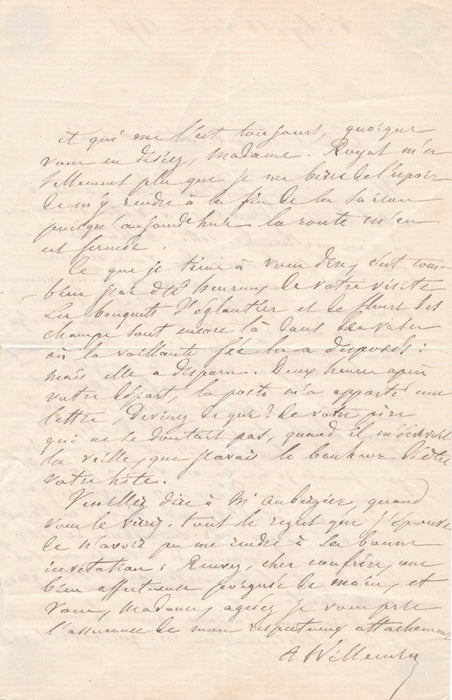 et qui me l'est toujours, quoique
vous en disiez, Madame. Royat m'a
tellement plu que je me berce de l'espoir
de m'y rendre à la fin de la saison
puisqu'aujourd'hui la route m'en
est fermée.
Ce que je tiens à vous dire, c'est com-
bien j'ai été heureux de votre visite
Les bouquets d'églantier et de fleurs des
champs sont encore là dans les vases
où la vaillante fée les a disposés:
mais elle a disparu. Deux heures après
votre départ, la poste m'a apporté une
lettre, devinez de qui? de votre père
qui ne se doutait pas, quand il m'écrivait
la veille, que j'avais le bonheur d'être
votre hôte.
Veuillez dire à Mr Aubergier, quand
vous le verrez, tout le regret que j'éprouve
de n'avoir pu me rendre à sa bonne
invitation; Recevez, cher confrère, une
bien affectueuse poignée de mains, et
vous, Madame, agréez je vous prie
l'assurance de mon respectueux attachement
A Willemin